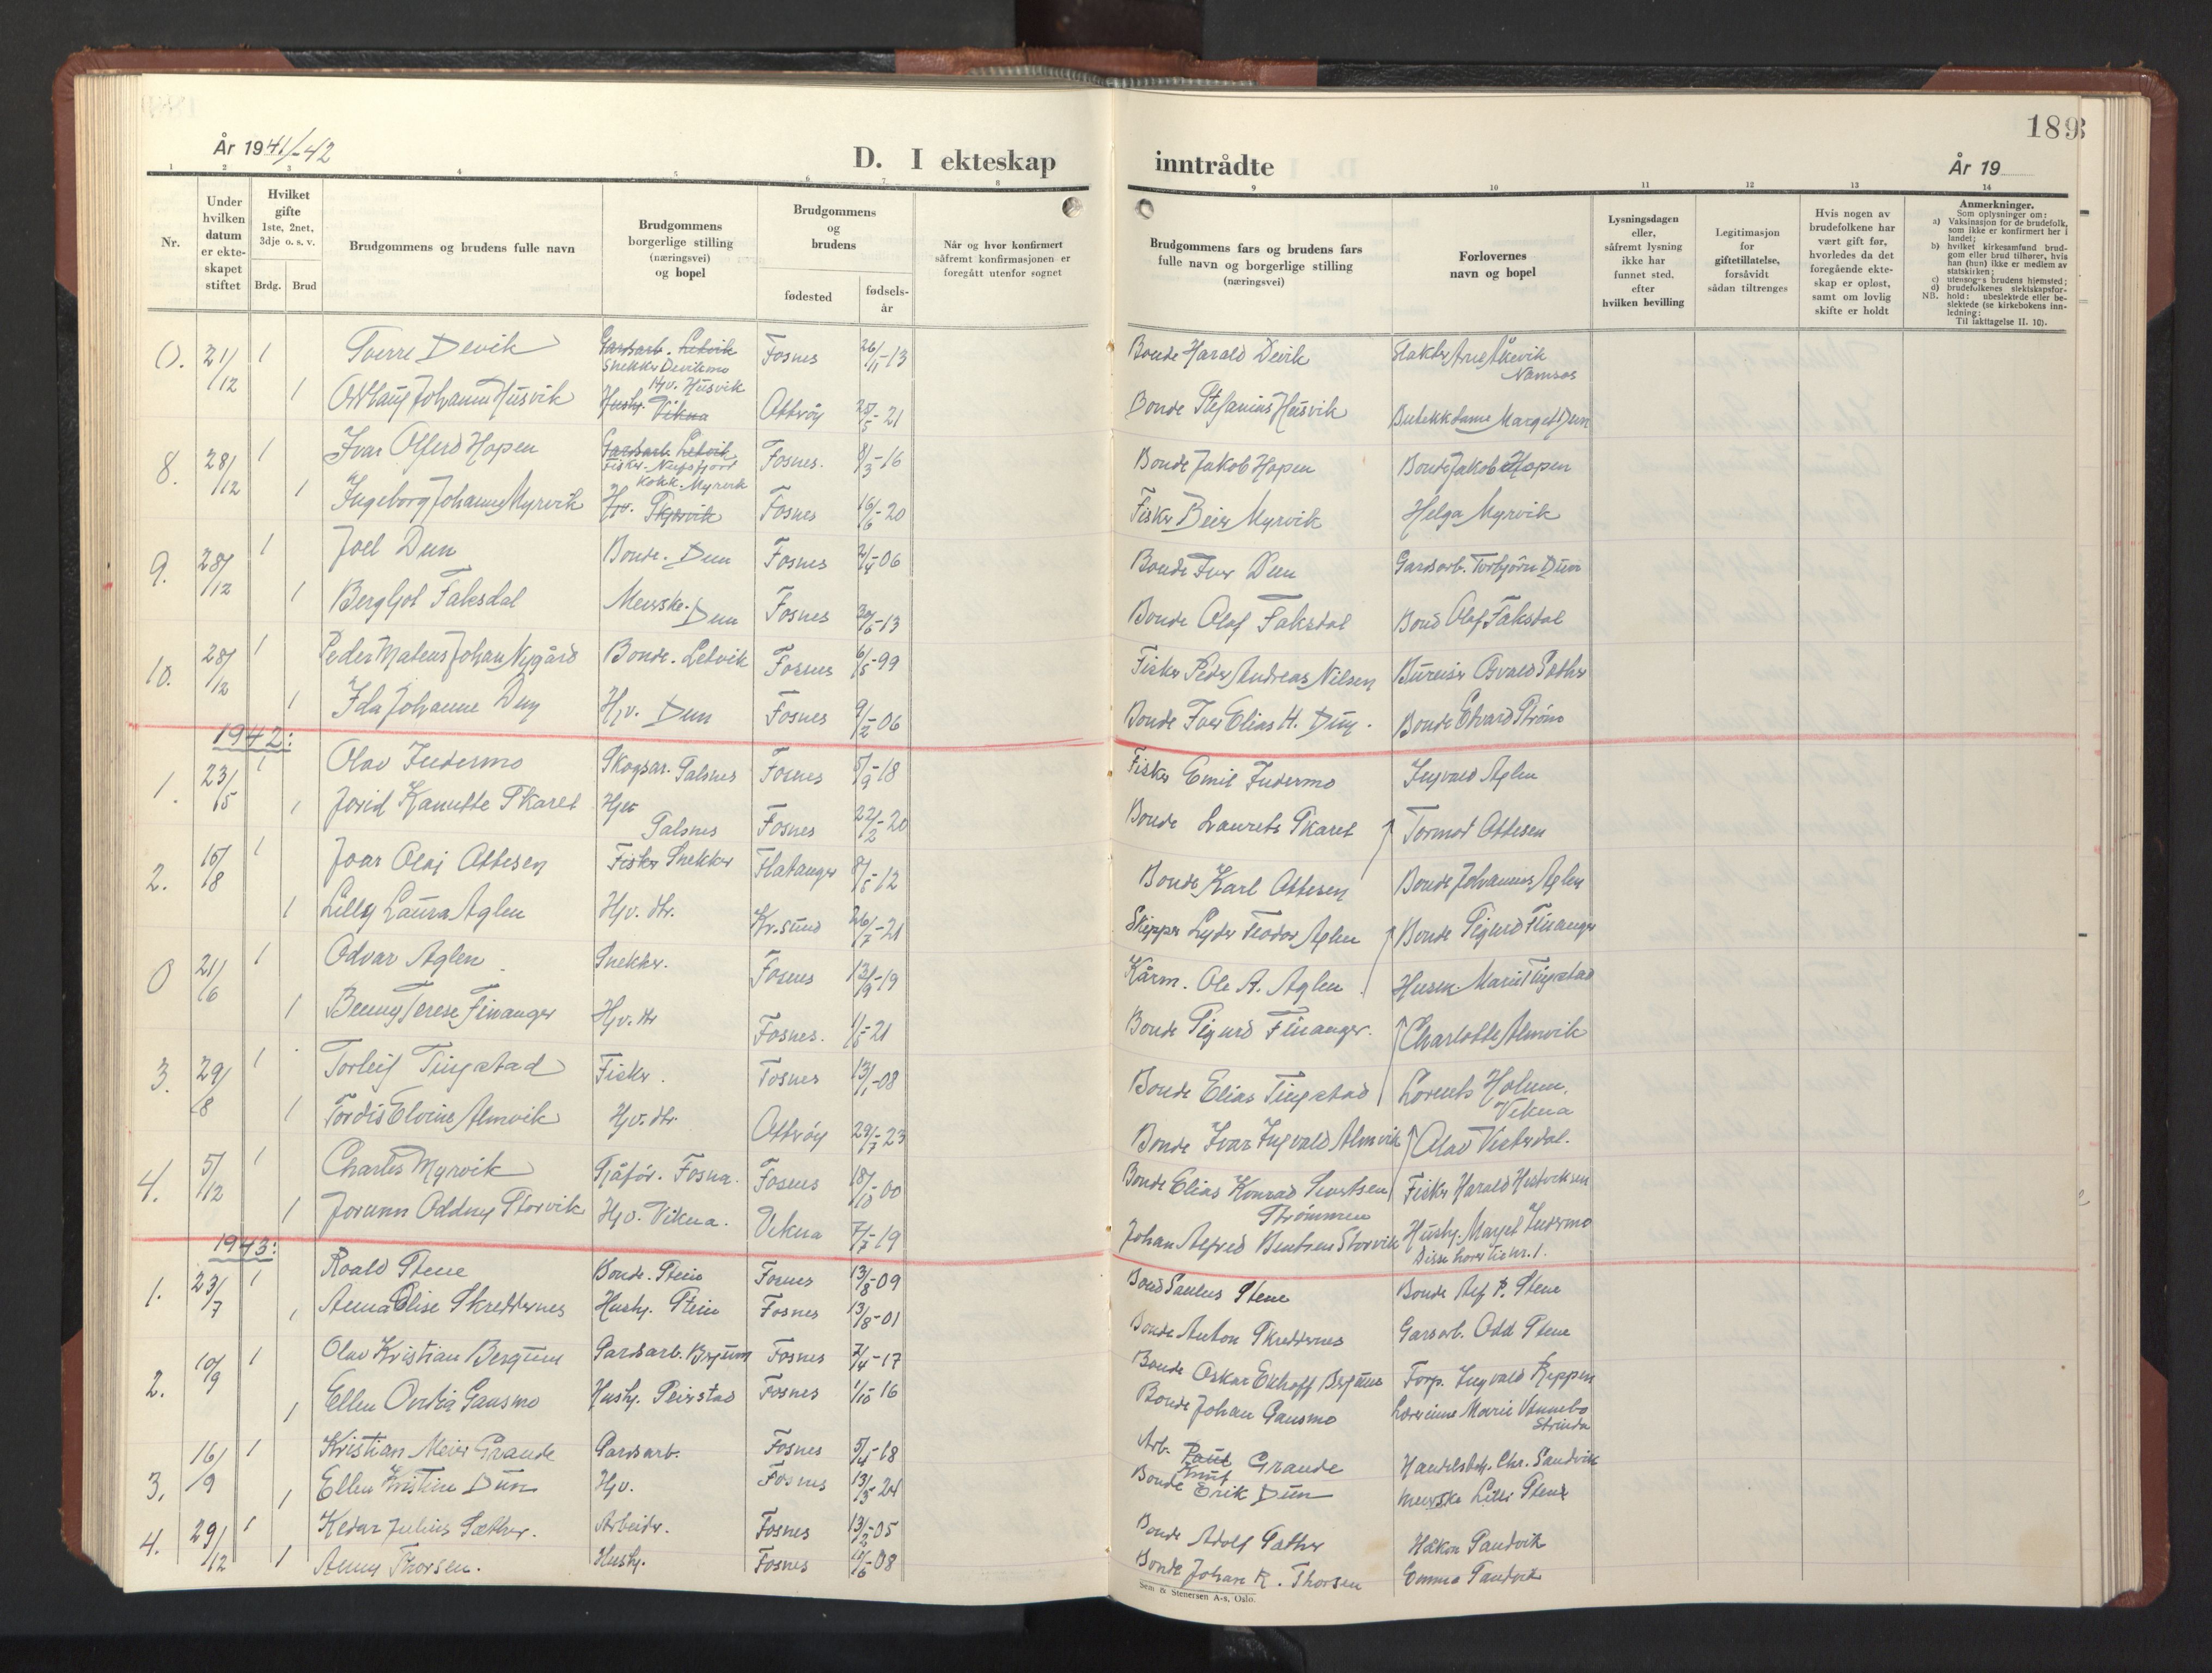 År 1941/-42
D. I ekteskap
inntrådte
År 19
189
1
2
3
4
5
6
7
8
9
10
11
12
13
14
Nr.
Under
hvilken
datum
er ekte-
skapet
stiftet
Hvilket
gifte
1ste, 2net,
3dje o. s. v.
Brdg.
Brud
Brudgommens og brudens fulle navn
Brudgommens
borgerlige stilling
(næringsvei)
og bopel
Brudgommens
og
brudens
fødested
fødsels-
år
Når og hvor konfirmert
såfremt konfirmasjonen er
foregått utenfor sognet
Brudgommens fars og brudens fars
fulle navn og borgerlige stilling
(næringsvei)
Forlovernes
navn og bopel
Lysningsdagen
eller,
såfremt lysning
ikke har
funnet sted,
efter
hvilken bevilling
Legitimasjon
for
giftetillatelse,
forsåvidt
sådan tiltrenges
Hvis nogen av
brudefolkene har
vært gift før,
hvorledes da det
foregående ekte-
skap er opløst,
samt om lovlig
skifte er holdt
Anmerkninger.
Som oplysninger om:
a) Vaksinasjon for de brudefolk,
som ikke er konfirmert her i
landet;
b) hvilket kirkesamfund brud-
gom eller brud tilhører, hvis
han (hun) ikke er medlem av
statskirken;
c) utensogns brudens hjemsted;
d) brudefolkenes slektskapsfor-
NB. hold: ubeslektede eller be-
slektede (se kirkebokens inn-
ledning:
Til iakttagelse II. 10).
0. 21/12 1 Sverre Devik Gardsarb. Letvik Fosnes 26/11-13 Bonde Harald Devik Slakter Arne Åkevik
Snekker Devikmo Namsos
1 Oddlaug Johanne Husvik Hjv. Husvik Ottrøy 25/5-21 Bonde Stefanius Husvik Butikkdame Margett Dun
Hushj. Vikna
8. 28/12 1 Ivar Alferd Hopen Gardsarb. Letvik Fosnes. 8/3-16 Bonde Jakob Hopen Bonde Jakob Hopen
Fisker
1 Ingeborg Johanne Myrvik Kokk. Myrvik Fosnes 16/6-20 Fisker Beier Myrvik Helga Myrvik
Hjv.
9. 28/12 1 Joel Dun Bonde. Dun Fosnes 2/4-06 Bonde Iver Dun Gardsarb. Torbjørn Dun
1 Bergljot Faksdal Meierske. Dun Fosnes 30/5-13 Bonde Olaf Faksdal Bond Olaf Faksdal
10. 28/12 1 Peder Mateus Johan Nygård Bonde. Letvik Fosnes 6/5-99 Fisker Peder Andreas Nilsen Bureiser Osvald Sæther
1 Ida Johanne Dun Hjv. Dun Fosnes 9/2-06 Bonde Iver Elias H. Dun. Bonde Edvard Strøm
1942:
1. 23/5 1 Olav Indermo Skogsar. Salsnes Fosnes 5/9-18 Fisker Emil Indermo Ingvald Aglen
1 Jorid Kanutte Skaret Hjv Salsnes Fosnes 22/2-20 Bonde Laurits Skaret Tormod Ottesen
2. 15/8 1 Joar Olai Ottesen Fisker Snekker Flatanger 8/5-12 Bonde Karl Ottesen Bonde Johannes Aglen
1 Lilly Laura Aglen Hjv. dtr. Kr.sund 26/7-21 Skipper Lyder Teodor Aglen Bonde Sigurd Finanger
0 21/6 1 Odvar Aglen Snekker. Fosnes 13/9-19 Kårm. Ole A. Aglen Husm. Marie Tingstad
1 Benny Terese Finanger Hjv. dtr Fosnes. 1/5-21 Bonde Sigurd Finanger. Charlotte Almvik
3. 29/8 1 Torleif Tingstad Fisker. Fosnes 13/1-08 Bonde Elias Tingstad Lorents Holum.
Vikna
1 Tordis Elvine Almvik Hjv. dtr Ottrøy 29/7-23 Bonde Ivar Ingvald Almvik Olav Vesterdal.
4. 5/12 1 Charles Myrvik Sjåfør. Fosna. Fosnes 18/10-00 Bonde Elias Konrad Sivertsen Fisker Harald
Strømmen
1 Jorunn Oddny Storvik Hjv. Vikna. Vikna 7/7-19 Johan Alfred Bentsen Storvik Hushj. Margel Indermo
Disse hører til nr. 1.
1943:
1. 23/7 1 Roald Stene Bonde. Stein Fosnes 13/8-09 Bond Paulus Stene Bonde Alf P. Stene
1 Anna Elise Skreddernes Hushj. Stein Fosnes 13/8-01 Bonde Anton Skreddernes Garsarb. Odd Stene
2. 10/9 1 Olav Kristian Bergum Gardsarb. Bergum Fosnes 7/4-17 Bonde Oskar Ekhoff Bergum Forp. Ingvald Reppen
1 Ellen Ovidia Gansmo Hushj. Seierstad Fosnes 1/10 16 Bonde Johan Gansmo Lærerinne Marie Vannebo
Strinda
3. 16/9 1 Kristian Meier Grande Gardsarb. Fosnes 5/4-18 Arb. Paul Grande Handelsbetj. Chr. Sandvik
Knut
1 Ellen Kristine Dun Hjv. Fosnes 13/3-24 Bonde Erik Dun Meierske Lilli Stene
4. 29/12 1 Kedar Julius Sæther. Arbeider. Fosnes 13/2-05 Bonde Adolf Sæther Håkon Sandvik
1 Anny Thorsen. Hushj. Fosnes 10/6-08 Bonde Johan R. Thorsen Emma Sandvik
Sem & Stenersen A-s, Oslo.